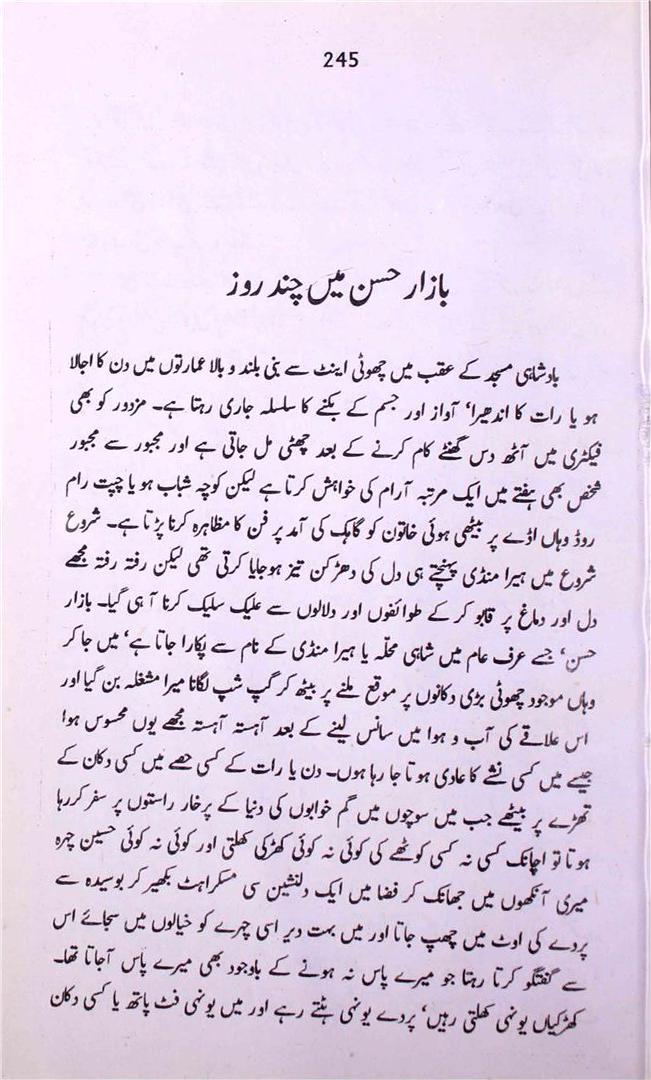 245
بازار حسن میں چند روز
بادشاہی مسجد کے عقب میں چھوٹی اینٹ سے بنی بلند و بالا عمارتوں میں دن کا اجالا
ہو یا رات کا اندھیرا، آواز اور جسم کے بکنے کا سلسلہ جاری رہتا ہے۔ مزدور کو بھی
فیکٹری میں آٹھ دس گھنٹے کام کرنے کے بعد چھٹی مل جاتی ہے اور مجبور سے مجبور
شخص بھی ہفتے میں ایک مرتبہ آرام کی خواہش کرتا ہے لیکن کوچہ شباب ہو یا چیت رام
روڈ وہاں اڈے پر بیٹھی ہوئی خاتون کو گاہک کی آمد پر فن کا مظاہرہ کرنا پڑتا ہے۔ شروع
شروع میں ہیرا منڈی پہنچتے ہی دل کی دھڑکن تیز ہوجایا کرتی تھی لیکن رفتہ رفتہ مجھے
دل اور دماغ پر قابو کر کے طوائفوں اور دلالوں سے علیک سلیک کرنا آ ہی گیا۔ بازار
حسن، جسے عرف عام میں شاہی محلّہ یا ہیرا منڈی کے نام سے پکارا جاتا ہے، میں جا کر
وہاں موجود چھوٹی بڑی دکانوں پر موقع ملنے پر بیٹھ کر گپ شپ لگانا میرا مشغلہ بن گیا اور
اس علاقے کی آب و ہوا میں سانس لینے کے بعد آہستہ آہستہ مجھے یوں محسوس ہوا
جیسے میں کسی نشے کا عادی ہوتا جا رہا ہوں۔ دن یا رات کے کسی حصے میں کسی دکان کے
تھڑے پر بیٹھے جب میں سوچوں میں گم خوابوں کی دنیا کے پرخار راستوں پر سفر کررہا
ہوتا تو اچانک کسی نہ کسی کوٹھے کی کوئی نہ کوئی کھڑکی کھلتی اور کوئی نہ کوئی حسین چہرہ
میری آنکھوں میں جھانک کر فضا میں ایک دلنشین سی مسکراہٹ بکھیر کر بوسیدہ سے
پردے کی اوٹ میں چھپ جاتا اور میں بہت دیر اسی چہرے کو خیالوں میں سجائے اس
سے گفتگو کرتا رہتا جو میرے پاس نہ ہونے کے باوجود بھی میرے پاس آجاتا تھا۔
کھڑکیاں یونہی کھلتی رہیں، پردے یونہی ہٹتے رہے اور میں یونہی فٹ پاتھ یا کسی دکان